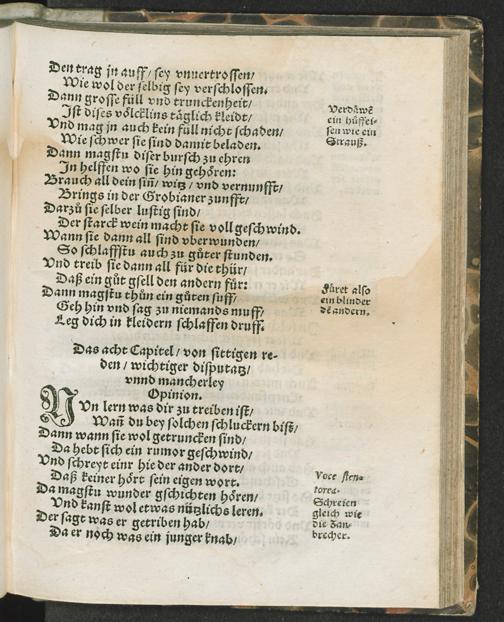 Den trag jn auff/ sey vnuertrossen/
Wie wol der selbig sey verschlossen.
Dann grosse füll vnd trunckenheit/
Ist dises völcklins täglich kleidt/
Vnd mag jn auch kein füll nicht schaden/
Wie schwer sie sind damit beladen.
Dann magstu diser bursch zu ehren
In helffen wo sie hin gehören:
Brauch all dein sin̄/ witz/ vnd vernunfft/
Brings in der Grobianer zunfft/
Darzů sie selber lustig sind/
Der starck wein macht sie voll geschwind.
Wann sie dann all sind vberwunden/
So schlaffstu auch zu gůter stunden.
Vnd treib sie dann all für die thür/
Daß ein gůt gsell den andern für:
Dann magstu thůn ein gůten suff/
Geh hin vnd sag zu niemands muff/
Leg dich in kleidern schlaffen druff.
Verdäwẽ
ein hůffei-
sen wie ein
Strauß.
Füret also
ein blinder
dẽ andern.
Das acht Capitel/ von sittigen re-
den/ wichtiger disputatz/
vnnd mancherley
Opinion.
NVn lern was dir zu treiben ist/
Wañ du bey solchen schluckern bist/
Dann wann sie wol getruncken sind/
Da hebt sich ein rumor geschwind/
Vnd schreyt einr hie der ander dort/
Daß keiner hört sein eigen wort.
Da magstu wunder gschichten hören/
Vnd kanst wol etwas nützlichs leren.
Der sagt was er getriben hab/
Da er noch was ein junger knab/
Voce sten-
torea.
Schreien
gleich wie
die Zan-
brecher.